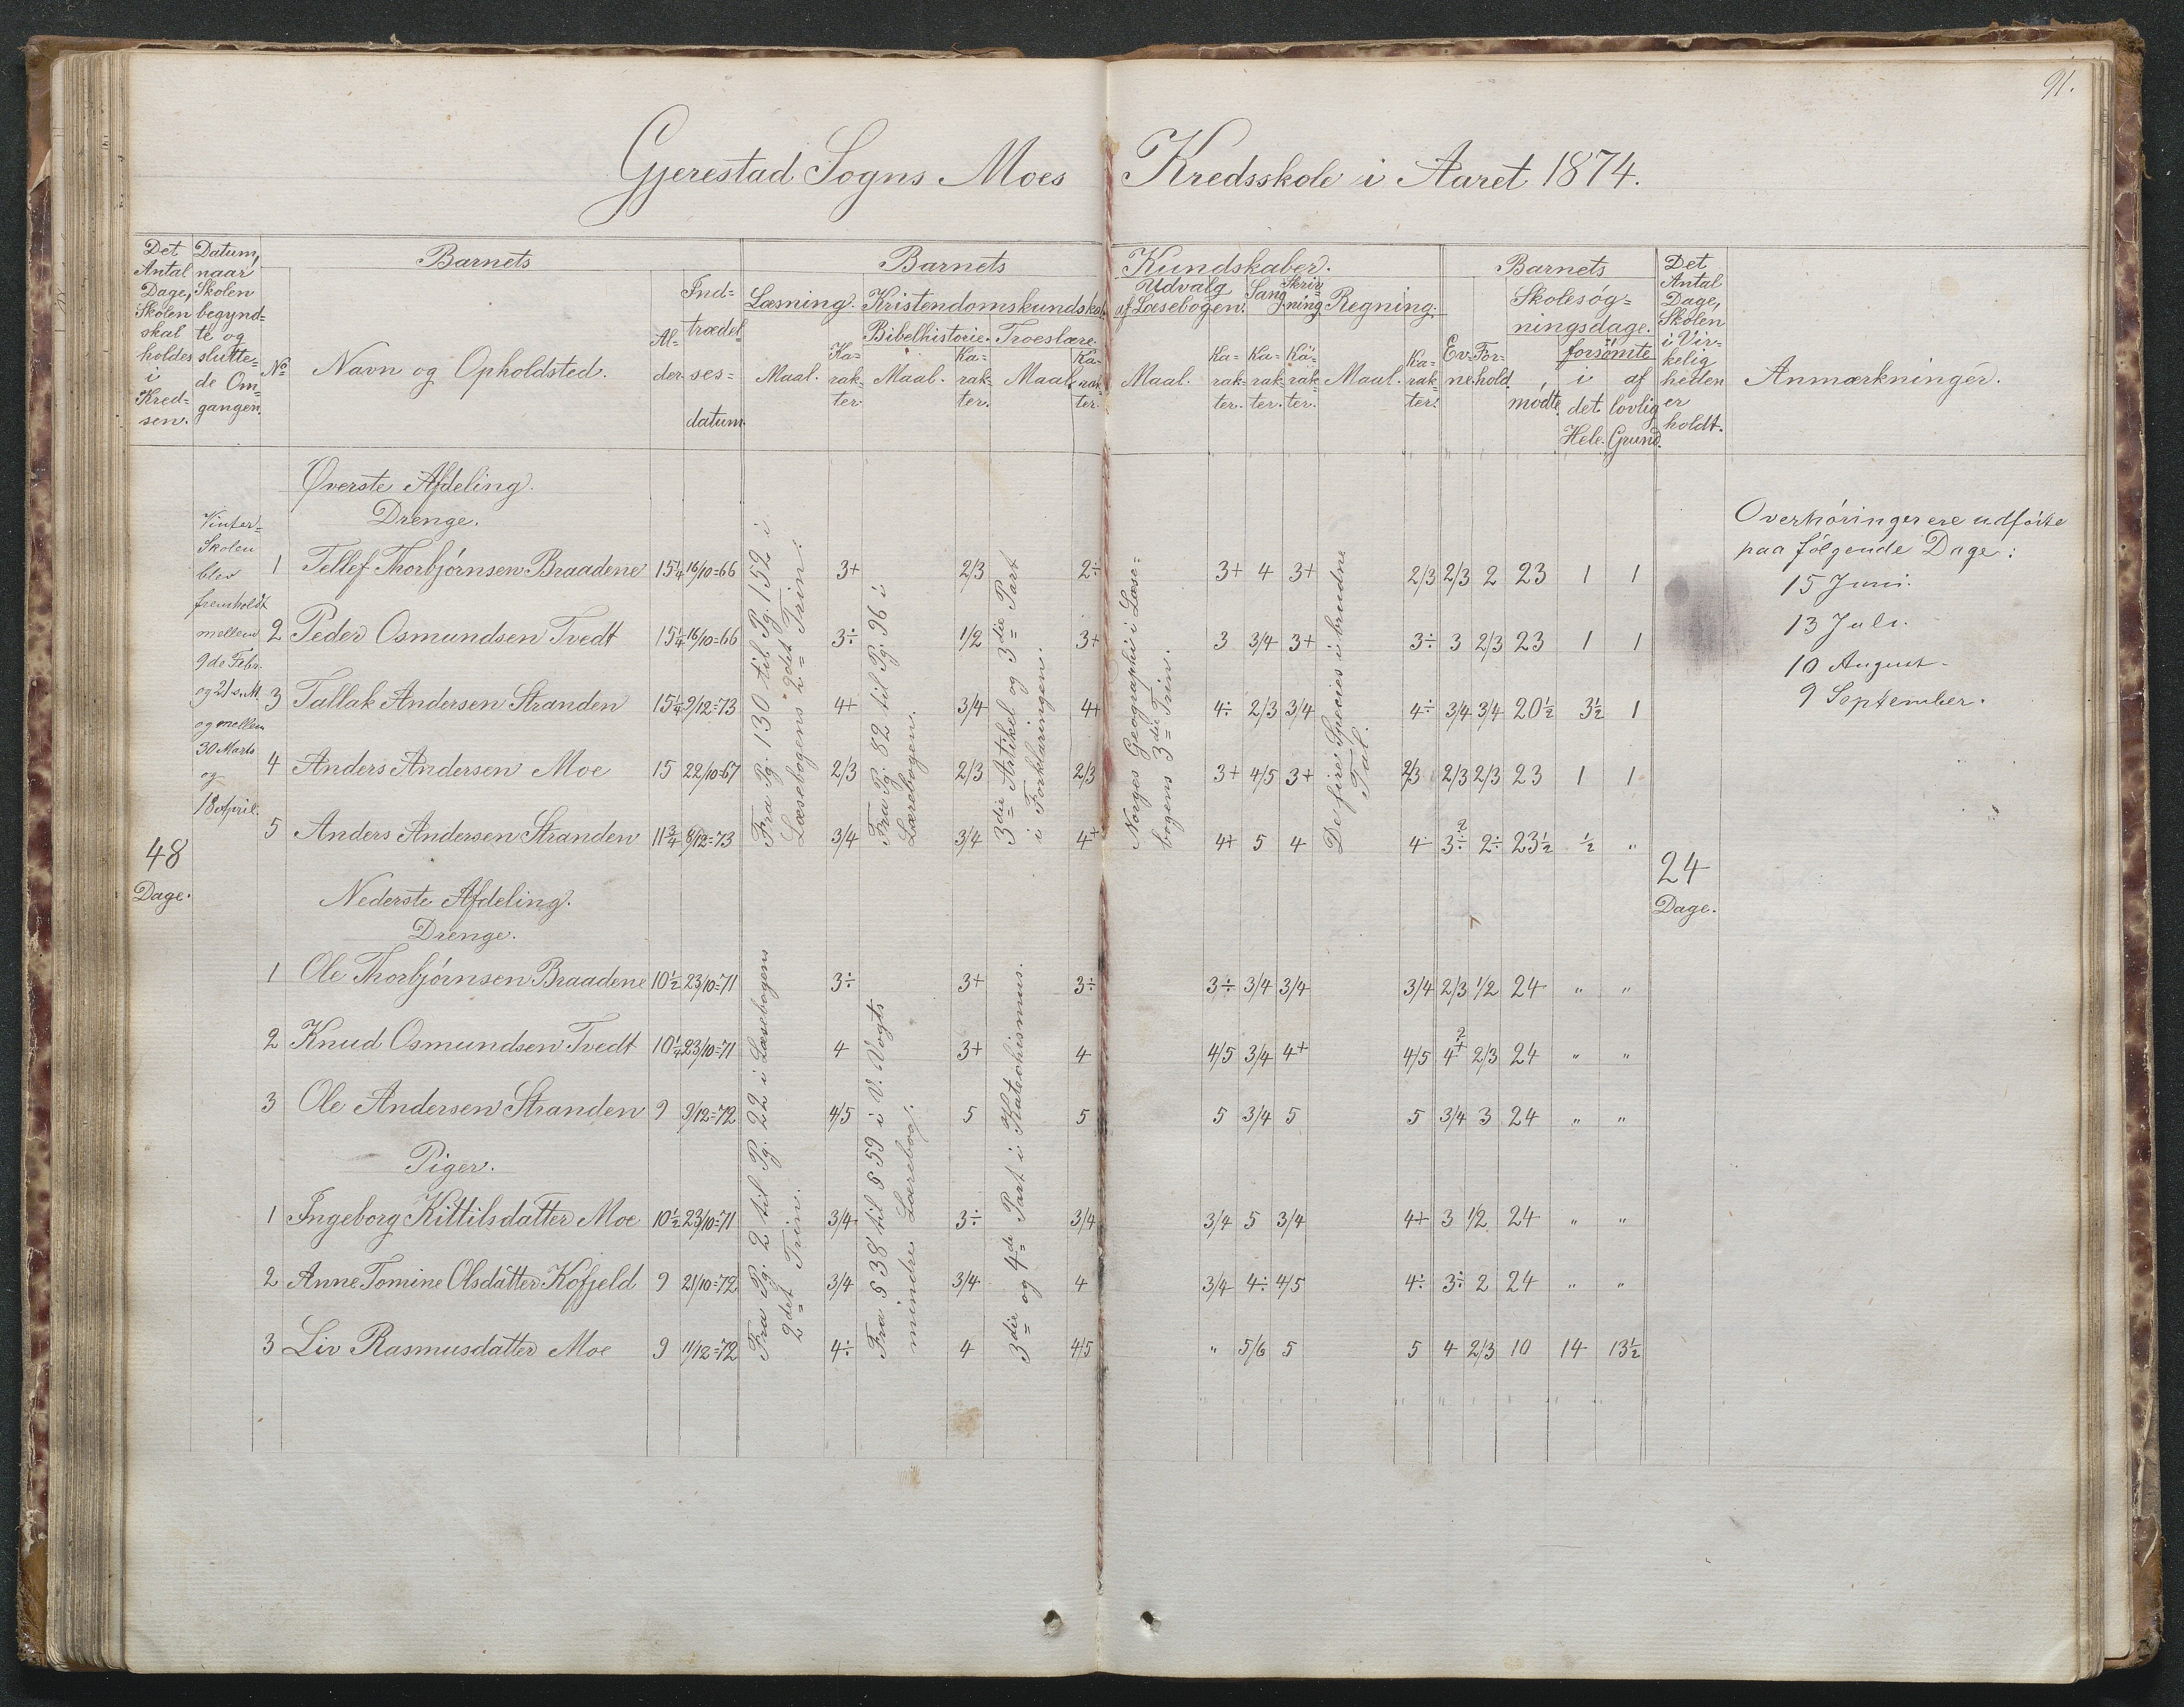 91.
Gjerestad Sogns Moes Kredsskole i Aaret 1874.
Det Antal Dage, Skolen skal holdes i Kredsen.
Datum, naar Skolen begyndte og sluttede Omgangen.
Barnets
No
Navn og Opholdsted.
Alder.
Indtrædelsesdatum.
Barnets Kundskaber.
Læsning. Kristendomskundskab.
Bibelhistorie. Troeslære.
Maal. Karakter. Maal. Karakter. Maal. Karakter.
Udvalg af Læsebogen. Sang Skrivning. Regning.
Maal. Karakter. Karakter. Karakter. Maal. Karakter.
Barnets
Evne. Forhold.
Skolesøgningsdage.
mødte. forsømte
i det Hele. af lovlig Grund.
Det Antal Dage, Skolen i Virkeligheden er holdt.
Anmærkninger.
48 Dage.
Vinter-
Skolen
blev
fremholdt
mellem
9de Febr.
og 21 s. M.
og mellem
30 Marts
og
18 April.
Øverste Afdeling.
Drenge.
1 Tellef Thorbjørnsen Braadene 15 1/4 16/10=66 3+ 2/3 2÷ 3+ 4 3+ 2/3 2/3 2 23 1 1
2 Peder Osmundsen Tvedt 15 1/4 16/10=66 3÷ 1/2 3+ 3 3/4 3+ 3÷ 3 2/3 23 1 1
3 Tallak Andersen Stranden 15 1/4 9/12=73 4+ 3/4 4+ 4÷ 2/3 3/4 4÷ 3/4 3/4 20 1/2 3 1/2 1
4 Anders Andersen Moe 15 22/10=67 2/3 2/3 2/3 3+ 4/5 3+ 2/3 2/3 2/3 23 1 1
5 Anders Andersen Stranden 11 3/4 8/12=73 3/4 3/4 4+ 4+ 5 4 4÷ 3÷ 2÷ 23 1/2 1/2 "
Fra Pg. 130 til Pg. 152 i
Læsebogens 2det Trin.
Fra Pg. 82 til Pg. 96 i
Lærebogen.
3die Artikel og 3die Part
i Forklaringen.
Norges Geographi i Læse-
bogens 3die Trin.
De fire Species i brudne
Tal.
Nederste Afdeling.
Drenge.
1 Ole Thorbjørnsen Braadene 10 1/2 23/10=71 3÷ 3+ 3÷ 3÷ 3/4 3/4 3/4 2/3 1/2 24 " "
2 Knud Osmundsen Tvedt 10 1/4 23/10=71 4 3+ 4 4/5 3/4 4+ 4/5 4+ 2/3 24 " "
3 Ole Andersen Stranden 9 9/12=72 4/5 5 5 5 3/4 5 5 3/4 3 24 " "
Piger.
1 Ingeborg Kittilsdatter Moe 10 1/2 23/10=71 3/4 3÷ 3/4 3/4 5 3/4 4+ 3 1/2 24 " "
2 Anne Tomine Olsdatter Kofjeld 9 21/10=72 3/4 3/4 4 3/4 4÷ 4/5 4÷ 3÷ 2 24 " "
3 Liv Rasmusdatter Moe 9 11/12=72 4÷ 4 4/5 " 5/6 5 5 4 2/3 10 14 13 1/2
Fra Pg. 2 til Pg. 22 i Læsebogens
2det Trin.
Fra § 38 til § 59 i V. Vogts
mindre Lærebog.
3die og 4de Part i Katechismus.
24
Dage.
Overhøringer ere udførte
paa følgende Dage:
15 Juni.
13 Juli.
10 August.
9 September.